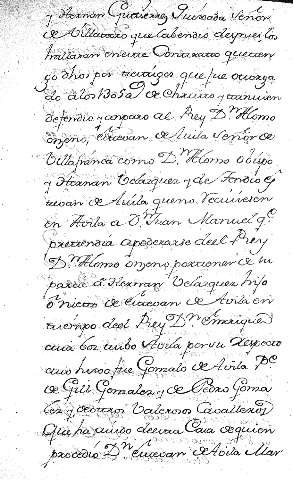 y Hernan Gutierrez Quesada Señor
de Villatoro que la bendio despues los
hallaran en este Contrato que ten
go dho por testigos que fue otorga
do año 1305 aº de Christo y tanvien
defendio y amparo al Rey Dⁿ Alonso
onzeno, estevan de Avila Señor de
Villafranca como Dⁿ Alonso obispo
y Hernan Velazquez y de Fortio es
tevan de Avila que no recivieron
en Avila a Dⁿ Juan Manuel qᵉ
pretendia apoderarse de el Rey
Dⁿ Alonso onzeno por ser de su
parte Hernan Velazquez hijo
o nieto de Estevan de Avila en
tiempo de el Rey Dⁿ enrique
cuia boz tubo Avila por su Rey
hizo fue Gonzalo de Avila Pᵉ
de Gil Gonzalez y de Pedro Gonza
lez y de otros valerosos Cavalleros
que ha avido de esta Casa de quien
procedio Dⁿ estevan de Avila Mar